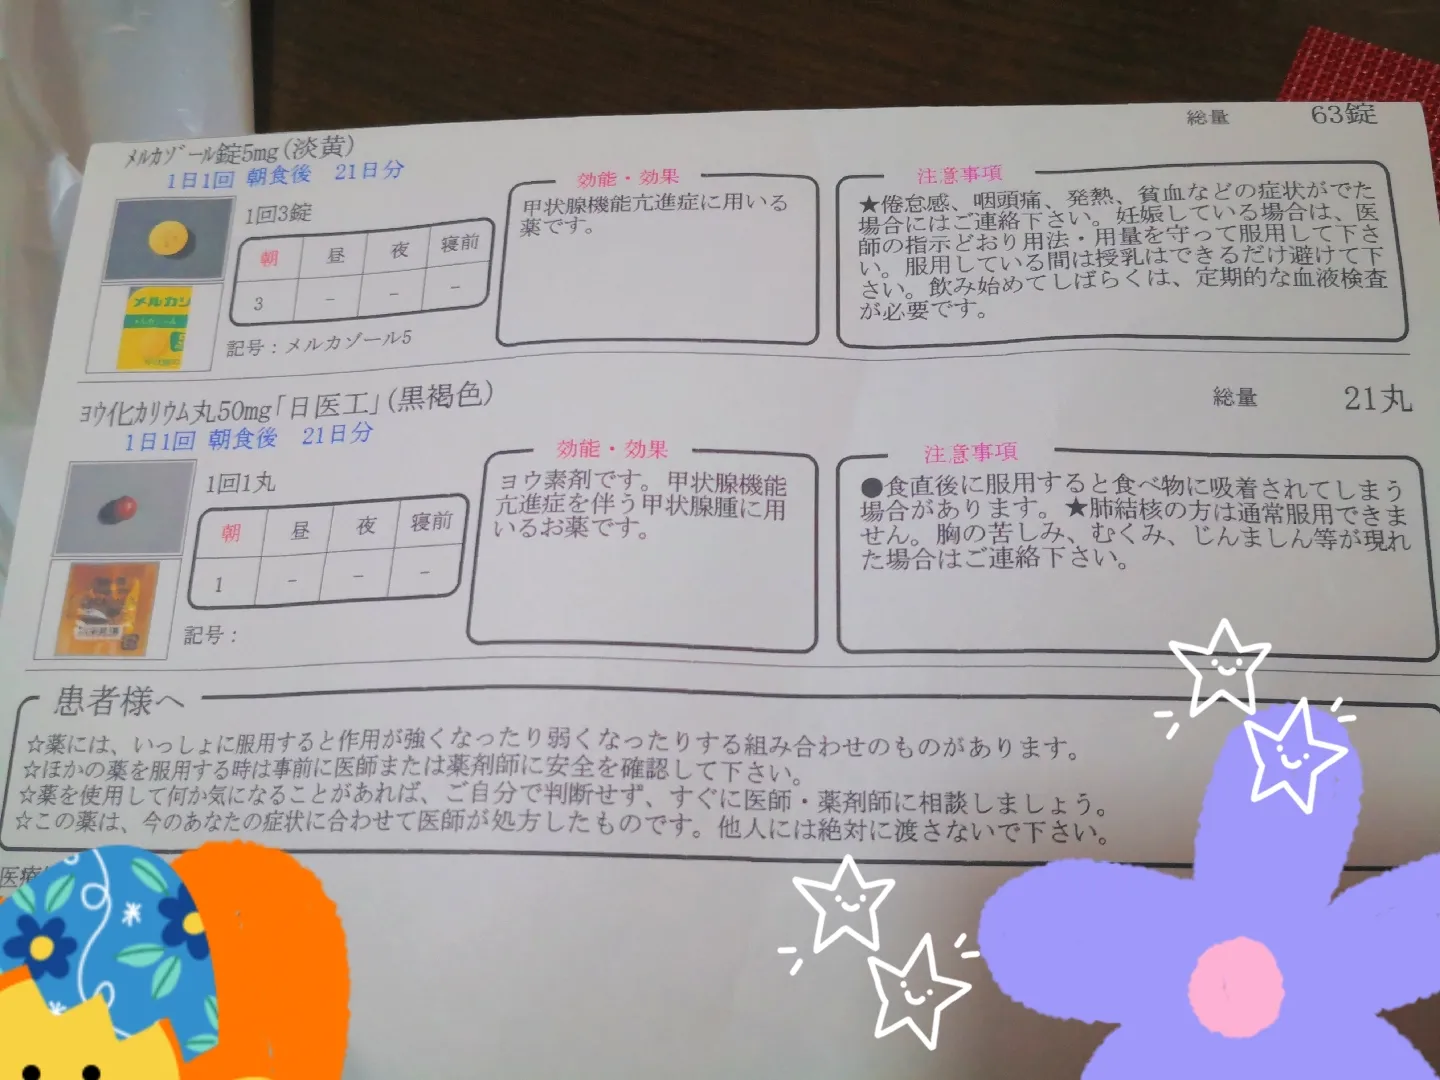 総量 63錠
メルカゾール錠5mg(淡黄)
1日1回 朝食後 21日分
1回3錠
朝 昼 夜 寝前
3 − − −
メルカゾ
記号：メルカゾール5
効能・効果
甲状腺機能亢進症に用いる
薬です。
注意事項
★倦怠感、咽頭痛、発熱、貧血などの症状がでた
場合にはご連絡下さい。妊娠している場合は、医
師の指示どおり用法・用量を守って服用して下さ
い。服用している間は授乳はできるだけ避けて下
さい。飲み始めてしばらくは、定期的な血液検査
が必要です。
ヨウイヒカリウム丸50mg「日医工」(黒褐色)
総量 21丸
1日1回 朝食後 21日分
1回1丸
朝 昼 夜 寝前
1 − − −
記号：
効能・効果
ヨウ素剤です。甲状腺機能
亢進症を伴う甲状腺腫に用
いるお薬です。
注意事項
●食直後に服用すると食べ物に吸着されてしまう
場合があります。★肺結核の方は通常服用できま
せん。胸の苦しみ、むくみ、じんましん等が現れ
た場合はご連絡下さい。
患者様へ
☆薬には、いっしょに服用すると作用が強くなったり弱くなったりする組み合わせのものがあります。
☆ほかの薬を服用する時は事前に医師または薬剤師に安全を確認して下さい。
☆薬を使用して何か気になることがあれば、ご自分で判断せず、すぐに医師・薬剤師に相談しましょう。
☆この薬は、今のあなたの症状に合わせて医師が処方したものです。他人には絶対に渡さないで下さい。
医療